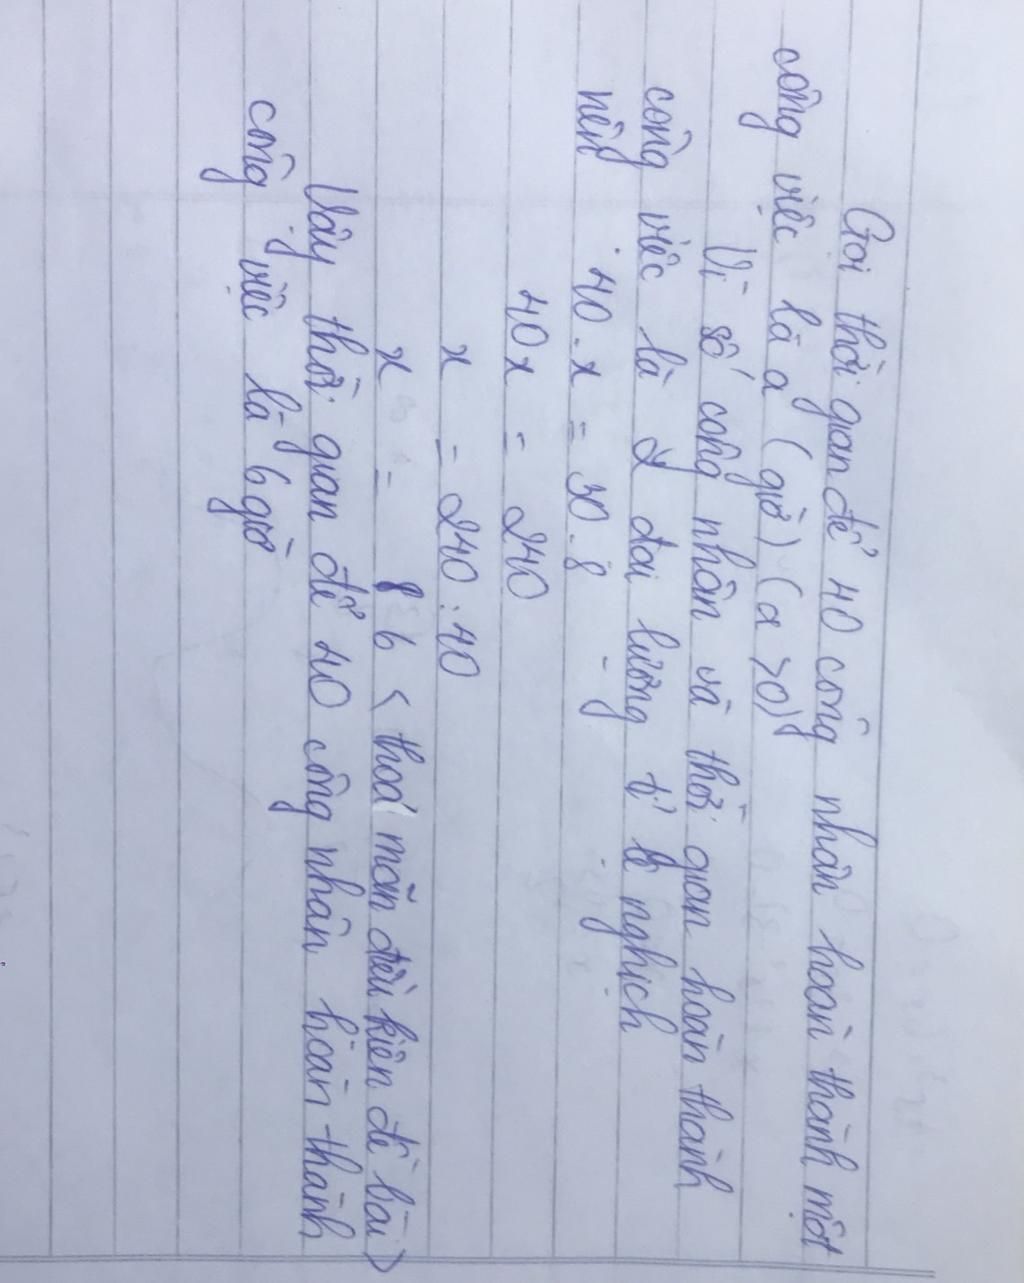 Gọi thời gian để 40 công nhân hoàn thành một
công việc là a (giờ) (a > 0)
Vì số công nhân và thời gian hoàn thành
công việc là 2 đai lương tỉ lệ nghịch
nên 40 . x = 30 . 8
40x = 240
x = 240 : 40
x = 6 < thoả mãn điều kiên đề bài >
Vây thời gian để 40 công nhân hoàn thành
công việc là 6 giờ